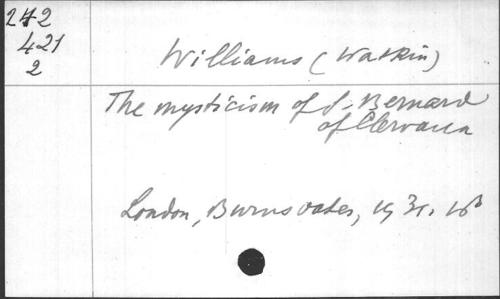 242
421
2
Williams (Watkin)
The mysticism of S. Bernard
of Clervaux
London, Burns oates, 1931. 16º